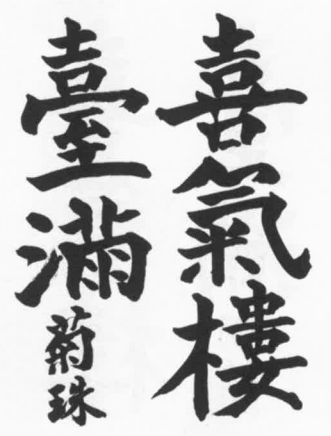 喜氣樓
臺滿
菊珠